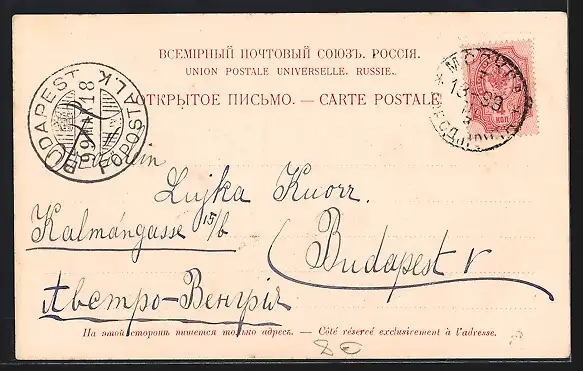 ВСЕМІРНЫЙ ПОЧТОВЫЙ СОЮЗЪ. РОССІЯ.
UNION POSTALE UNIVERSELLE. RUSSIE.
ОТКРЫТОЕ ПИСЬМО. — CARTE POSTALE
BUDAPEST
FŐPOSTA I.K
МОСКВА
коп
Lujka Knorr.
Kalmángasse 15/b
Budapest V
Австро-Венгрія
На этой сторонѣ пишется только адресъ. — Côté réservé exclusivement à l'adresse.